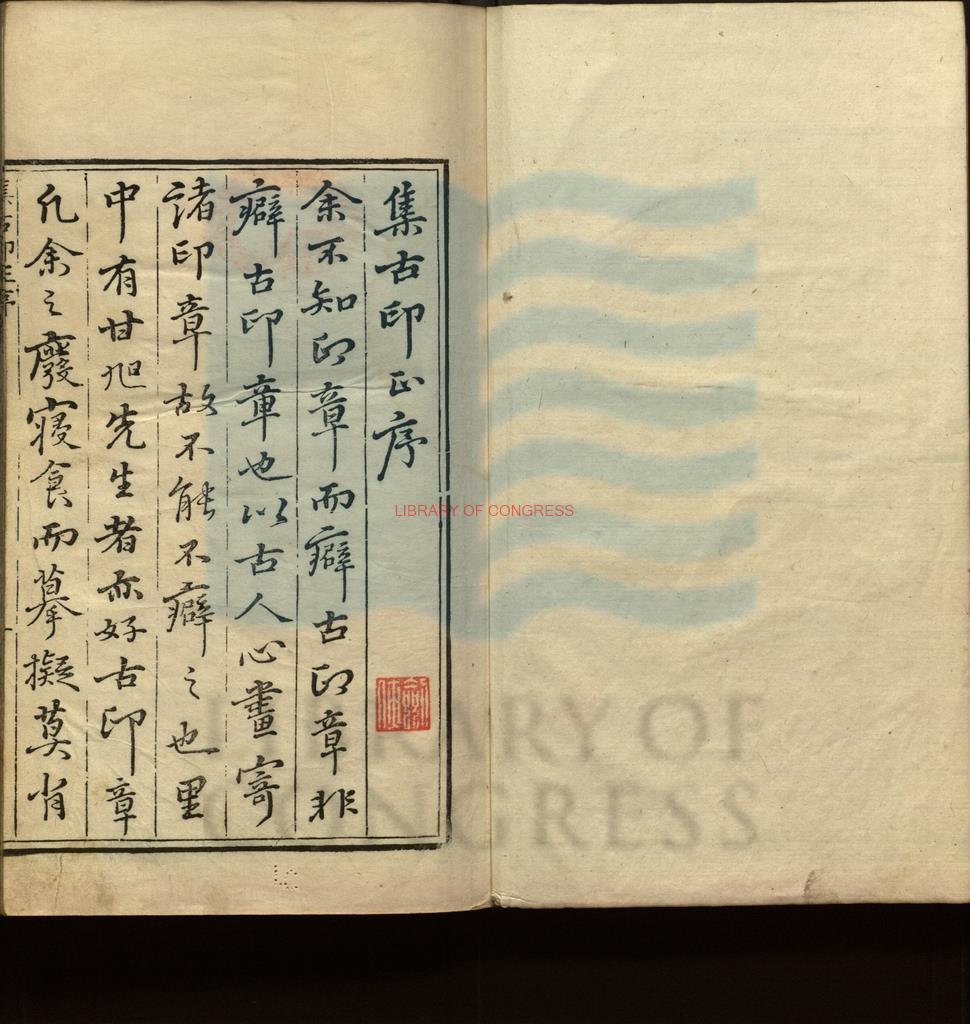 集古印正序
余不知印章而癖古印章非
癖古印章也以古人心畫寄
諸印章故不能不癖之也里
中有甘旭先生者亦好古印章
凡余之癈寢食而摹擬莫肖
集古印正序
LIBRARY OF CONGRESS
LIBRARY OF
CONGRESS